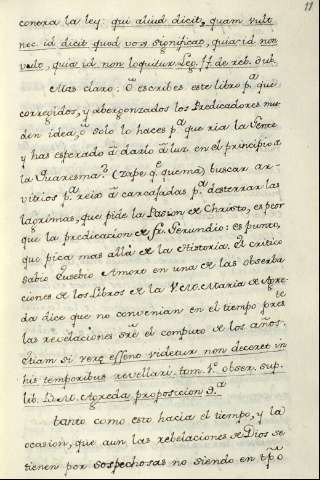 11
conoxa la ley: qui aliud dicit, quam vult
nec id dicit quod vox significat, quia id non
vult, quia id non loquitur Leg. 17 de reb. dub.
Mas claro: O escribes este libro p.ª que
corregidos, y abergonzados los Predicadores mu-
den idea, ó solo lo haces p.ª que ria la Gente
y has esperado á darlo á luz en el principio de
la Quaresma? (zape q.e quema) buscar ar-
vitrios p.ª reir á carcajadas p.ª desterrar las
lagrimas, que pide la Pasion de Christo, es peor
que la predicacion de Fr. Gerundio: es punto,
que pica mas allá de la Historia. El critico
sabio Eusebio Amort en una de las observa
ciones de los Libros de la V. M. Maria de Agre-
da dice que no convenian en el tiempo pres.te
las revelaciones sr̃e el computo de los años.
Etiam si vere essent videtur non decoret in
his temporibus revellari. tom. 1.º obser. sup.
lib. Agreda proposicion 9.ª
tanto como esto hacia el tiempo, y la
ocasion, que aun las rebelaciones de Dios se
tienen por sospechosas no siendo en tp̃o